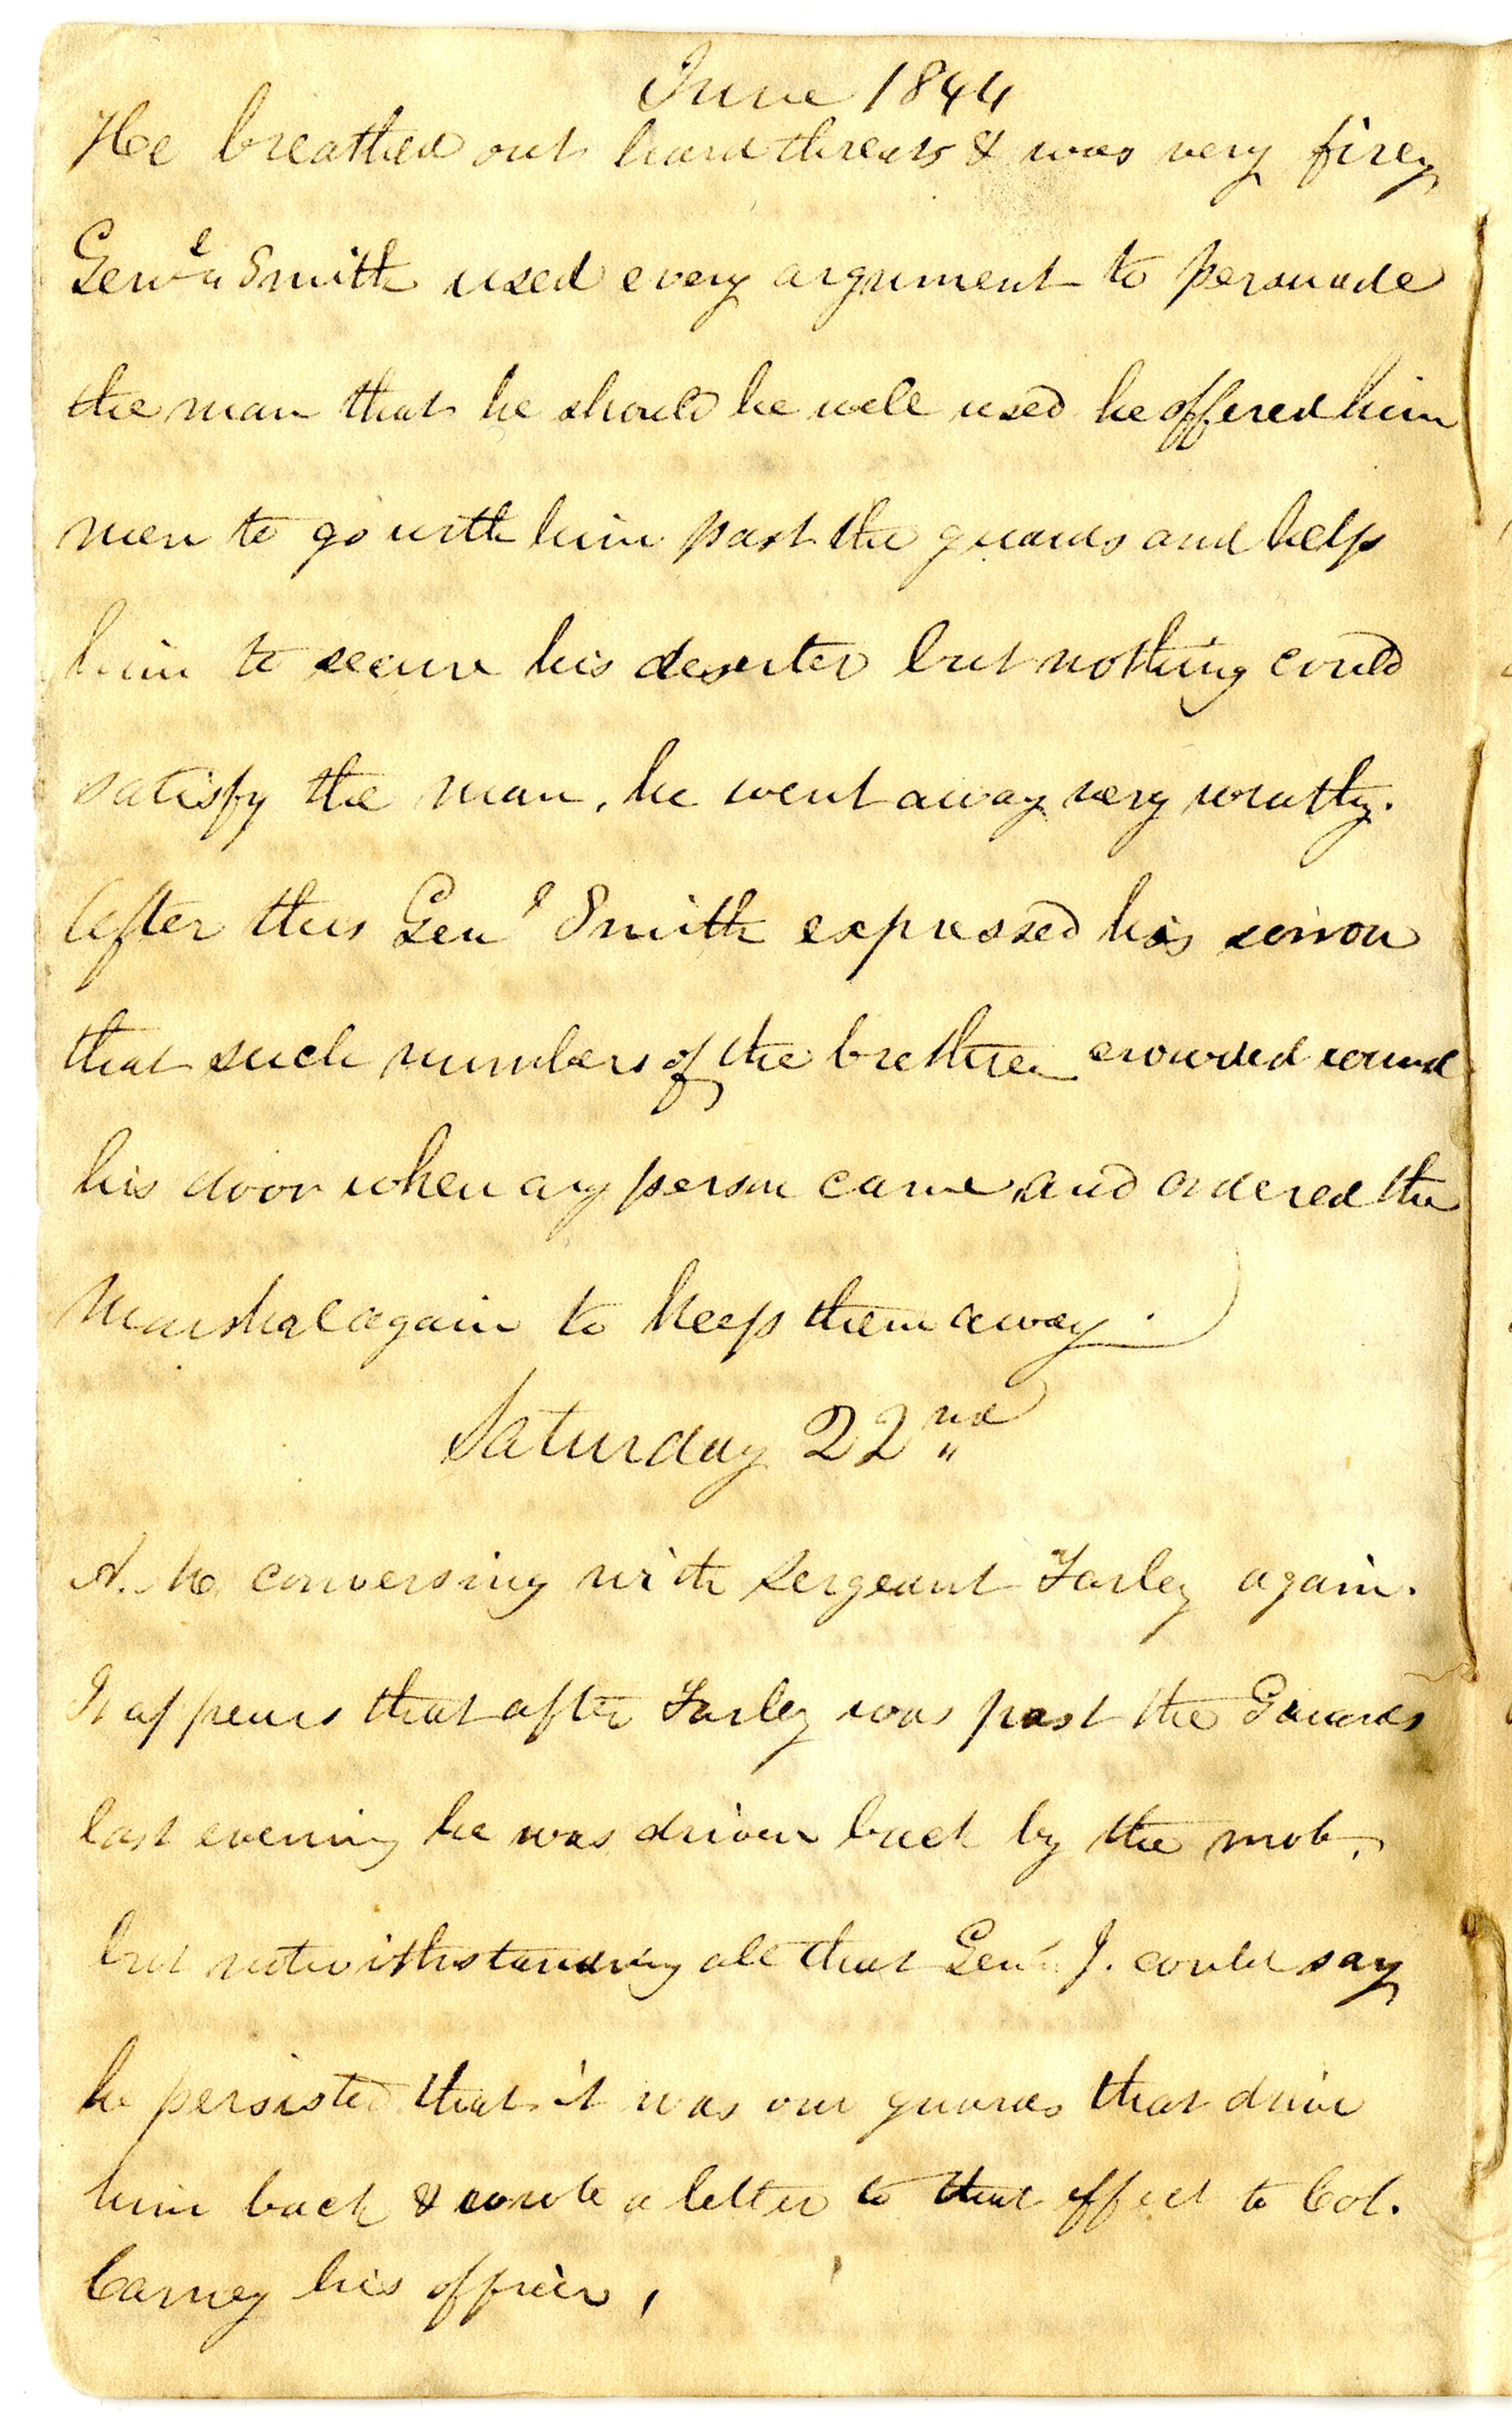 June 1844
He breathed out hard threats & was very firey
Genˡ Smith used every argument to persuade
the man that he should be well used he offered him
men to go with him past the guards and help
him to secure his deserter but nothing could
satisfy the man, he went away very wrathy.
After this Genˡ Smith expressed his sorrow
that such numbers of the brethren crowded round
his door when any person came, and ordered the
Marshal again to keep them away.
Saturday 22ⁿᵈ
A. M. conversing with Sergeant Farley again.
It appears that after Farley was past the Guards
last evening he was driven back by the mob,
but notwithstanding all that Genˡ J. could say
he persisted that it was our guards that drive
him back & wrote a letter to that effect to Col.
Carney his officer,